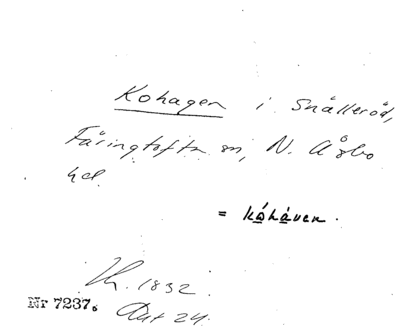 Kohagen i Snålleröd,
Fåringtofta sn, N. Åsbo
hd.
= kåhåven.
1832.
Nr 7237. Akt 24